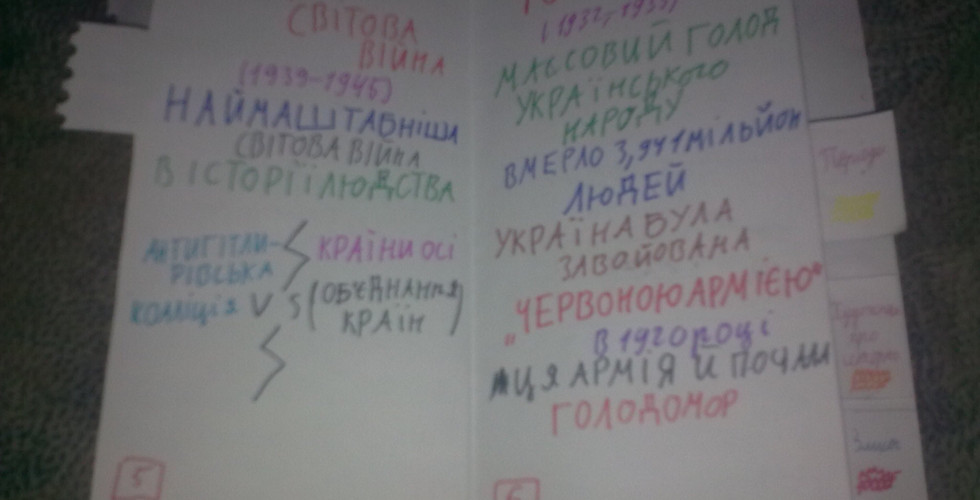 СВІТОВА
ВІЙНА
(1939-1945)
НАЙМАШТАБНІША
СВІТОВА ВІЙНА
В ІСТОРІЇ ЛЮДСТВА
АНТИГІТЛИ-
РІВСЬКА
КОАЛІЦІЯ VS
КРАЇНИ ОСІ
(ОБ'ЄДНАННЯ
КРАЇН)
5
(1932-1933)
МАССОВИЙ ГОЛОД
УКРАЇНСЬКОГО
НАРОДУ
ВМЕРЛО 3,941 МІЛЬЙОН
ЛЮДЕЙ
УКРАЇНА БУЛА
ЗАВОЙОВАНА
„ЧЕРВОНОЮ АРМІЄЮ"
В 1920 РОЦІ
ЦЯ АРМІЯ Й ПОЧАЛИ
ГОЛОДОМОР
6